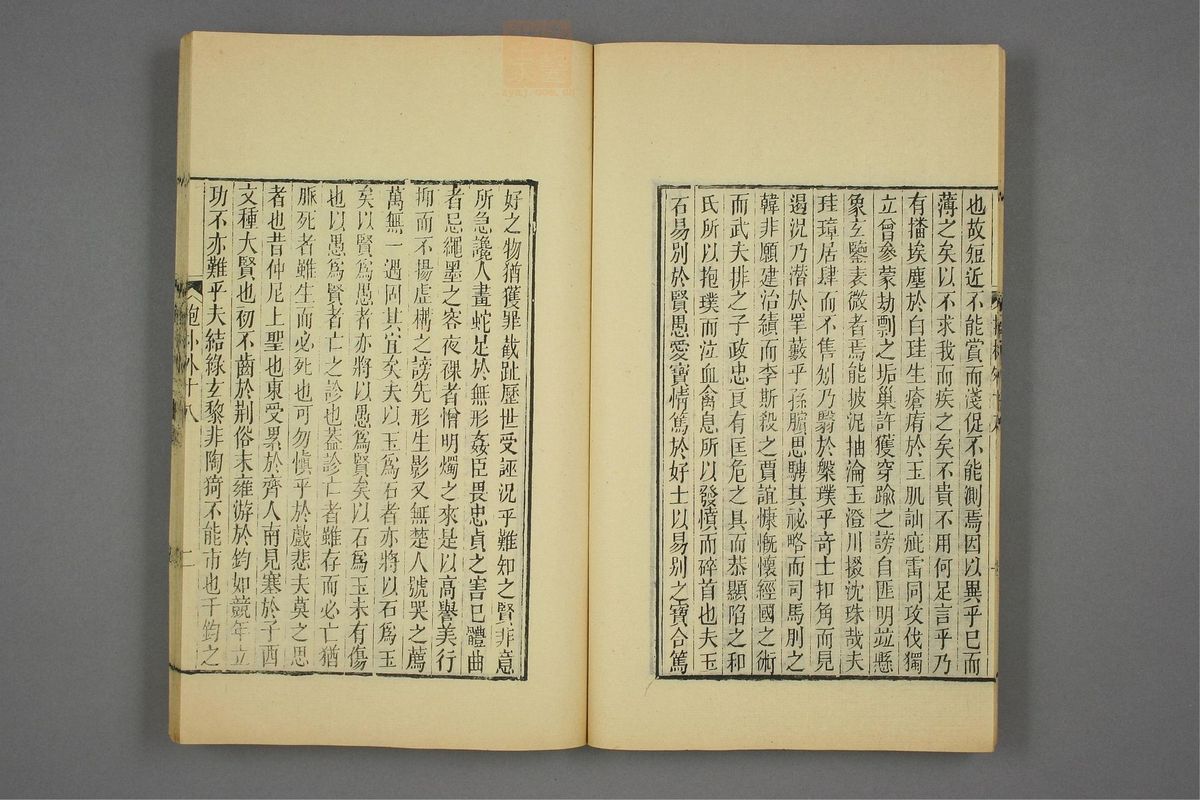 也故短近不能賞而淺促不能測焉因以異乎巳而
薄之矣以不求我而疾之矣不貴不用何足言乎乃
有播埃塵於白珪生瘡痏於玉肌訕疵雷同攻伐獨
立曾參蒙劫剽之垢巢許獲穿踰之謗自匪明竝懸
象玄鑒表微者焉能披泥抽淪玉澄川掇沈珠哉夫
珪璋居肆而不售矧乃翳於槃璞乎奇士扣角而見
遏況乃潛於皋藪乎孫臏思騁其祕略而司馬刖之
韓非願建治績而李斯殺之賈誼慷慨懷經國之術
而武夫排之子政忠良有匡危之具而恭顯陷之和
氏所以抱璞而泣血禽息所以發憤而碎首也夫玉
石易別於賢愚愛寶情篤於好士以易別之寶合篤
好之物猶獲罪截趾歷世受誣況乎難知之賢非意
所急讒人畫蛇足於無形姦臣畏忠貞之害巳體曲
者忌繩墨之容夜裸者憎明燭之來是以高譽美行
抑而不揚虛構之謗先形生影又無楚人號哭之薦
萬無一遇固其宜矣夫以玉爲石者亦將以石爲玉
矣以賢爲愚者亦將以愚爲賢矣以石爲玉未有傷
也以愚爲賢者亡之診也蓋診亡者雖存而必亡猶
脈死者雖生而必死也可勿愼乎於戲悲夫莫之思
者也昔仲尼上聖也東受累於齊人南見塞於子西
文種大賢也初不齒於荆俗末雍游於鈞如競年立
功不亦難乎夫結綠玄黎非陶猗不能市也千鈞之
抱朴外十八
二